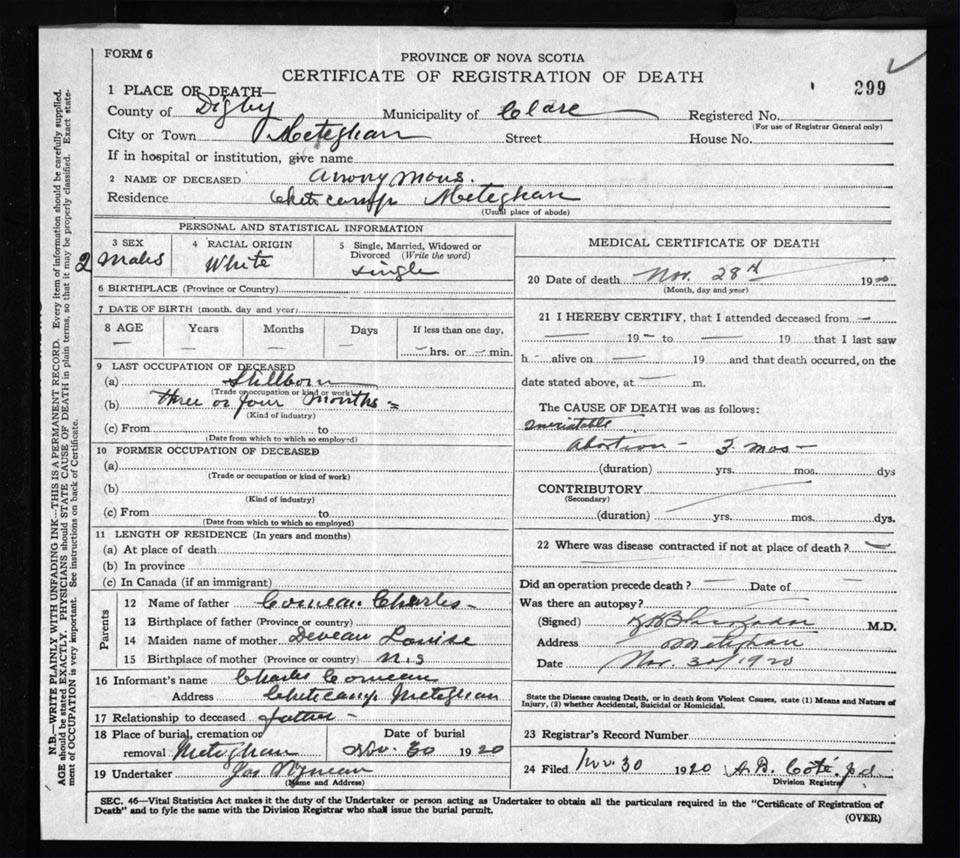 FORM 6
PROVINCE OF NOVA SCOTIA
CERTIFICATE OF REGISTRATION OF DEATH
299
1 PLACE OF DEATH—
County of Digby Municipality of Clare Registered No.
(For use of Registrar General only)
City or Town Meteghan Street House No.
If in hospital or institution, give name
2 NAME OF DECEASED anonymous.
Residence Cheticamp Meteghan
(Usual place of abode)
PERSONAL AND STATISTICAL INFORMATION
3 SEX
2 Males
4 RACIAL ORIGIN
White
5 Single, Married, Widowed or
Divorced (Write the word)
single
6 BIRTHPLACE (Province or Country)
7 DATE OF BIRTH (month, day and year)
8 AGE Years Months Days
If less than one day,
hrs. or min.
9 LAST OCCUPATION OF DECEASED
(a) Stillborn
(Trade or occupation or kind or work)
(b) three or four months
(Kind of industry)
(c) From to
(Date from which to which so employed)
10 FORMER OCCUPATION OF DECEASED
(a)
(Trade or occupation or kind of work)
(b)
(Kind of industry)
(c) From to
(Date from which to which so employed)
11 LENGTH OF RESIDENCE (In years and months)
(a) At place of death
(b) In province
(c) In Canada (if an immigrant)
Parents
12 Name of father Comeau Charles
13 Birthplace of father (Province or country)
14 Maiden name of mother Deveau Louise
15 Birthplace of mother (Province or country) N.S
16 Informant's name Charles Comeau
Address Cheticamp Meteghan
17 Relationship to deceased father
18 Place of burial, cremation or
removal Meteghan
Date of burial
Nov. 30 1920
19 Undertaker Jos
(Name and Address)
MEDICAL CERTIFICATE OF DEATH
20 Date of death Nov. 28 19
(Month, day and year)
21 I HEREBY CERTIFY, that I attended deceased from
19 to 19 that I last saw
h alive on 19 and that death occurred, on the
date stated above, at m.
The CAUSE OF DEATH was as follows:
abortion 3 mos
(duration) yrs. mos. dys
CONTRIBUTORY
(Secondary)
(duration) yrs. mos. dys.
22 Where was disease contracted if not at place of death?
Did an operation precede death? Date of
Was there an autopsy?
(Signed) M.D.
Address Meteghan
Date Nov. 30/1920
State the Disease causing Death, or in death from Violent Causes, state (1) Means and Nature of
Injury, (2) whether Accidental, Suicidal or Homicidal.
23 Registrar's Record Number
24 Filed Nov. 30 1920 Coté
Division Registrar
SEC. 46—Vital Statistics Act makes it the duty of the Undertaker or person acting as Undertaker to obtain all the particulars required in the "Certificate of Registration of
Death" and to fyle the same with the Division Registrar who shall issue the burial permit.
(OVER)
N.B.—WRITE PLAINLY WITH UNFADING INK—THIS IS A PERMANENT RECORD. Every item of information should be carefully supplied.
AGE should be stated EXACTLY. PHYSICIANS should STATE CAUSE OF DEATH in plain terms, so that it may be properly classified. Exact state-
ment of OCCUPATION is very important. See instructions on back of Certificate.